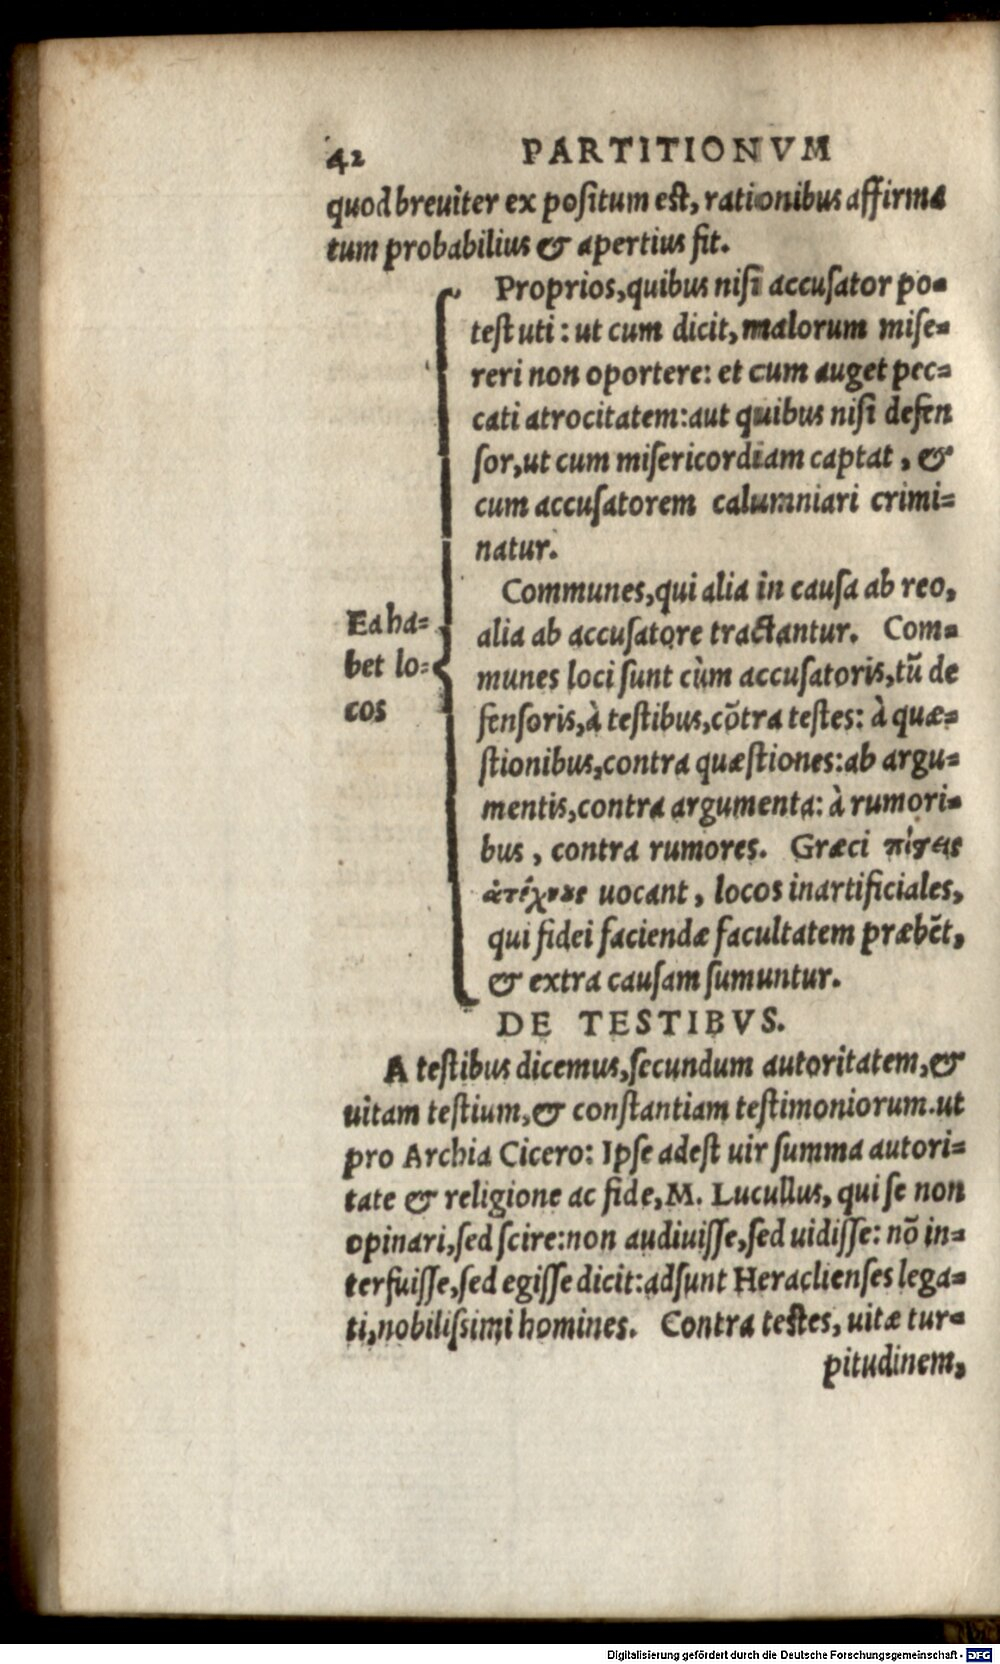 42 PARTITIONVM
quod breuiter ex positum est, rationibus affirma
tum probabilius & apertius fit.
Proprios, quibus nisi accusator po=
test uti: ut cum dicit, malorum mise=
reri non oportere: et cum auget pec=
cati atrocitatem: aut quibus nisi defen
sor, ut cum misericordiam captat, &
cum accusatorem calumniari crimi=
natur.
Communes, qui alia in causa ab reo,
Ea ha=
bet lo=
cos
alia ab accusatore tractantur. Com=
munes loci sunt cùm accusatoris, tū de
fensoris, à testibus, cōtra testes: à quæ=
stionibus, contra quæstiones: ab argu=
mentis, contra argumenta: à rumori=
bus, contra rumores. Græci πίστεις
ἀτέχνους uocant, locos inartificiales,
qui fidei faciendæ facultatem præbēt,
& extra causam sumuntur.
DE TESTIBVS.
A testibus dicemus, secundum autoritatem, &
uitam testium, & constantiam testimoniorum. ut
pro Archia Cicero: Ipse adest uir summa autori=
tate & religione ac fide, M. Lucullus, qui se non
opinari, sed scire: non audiuisse, sed uidisse: nō in=
terfuisse, sed egisse dicit: adsunt Heraclienses lega=
ti, nobilissimi homines. Contra testes, uitæ tur=
pitudinem,
Digitalisierung gefördert durch die Deutsche Forschungsgemeinschaft - DFG